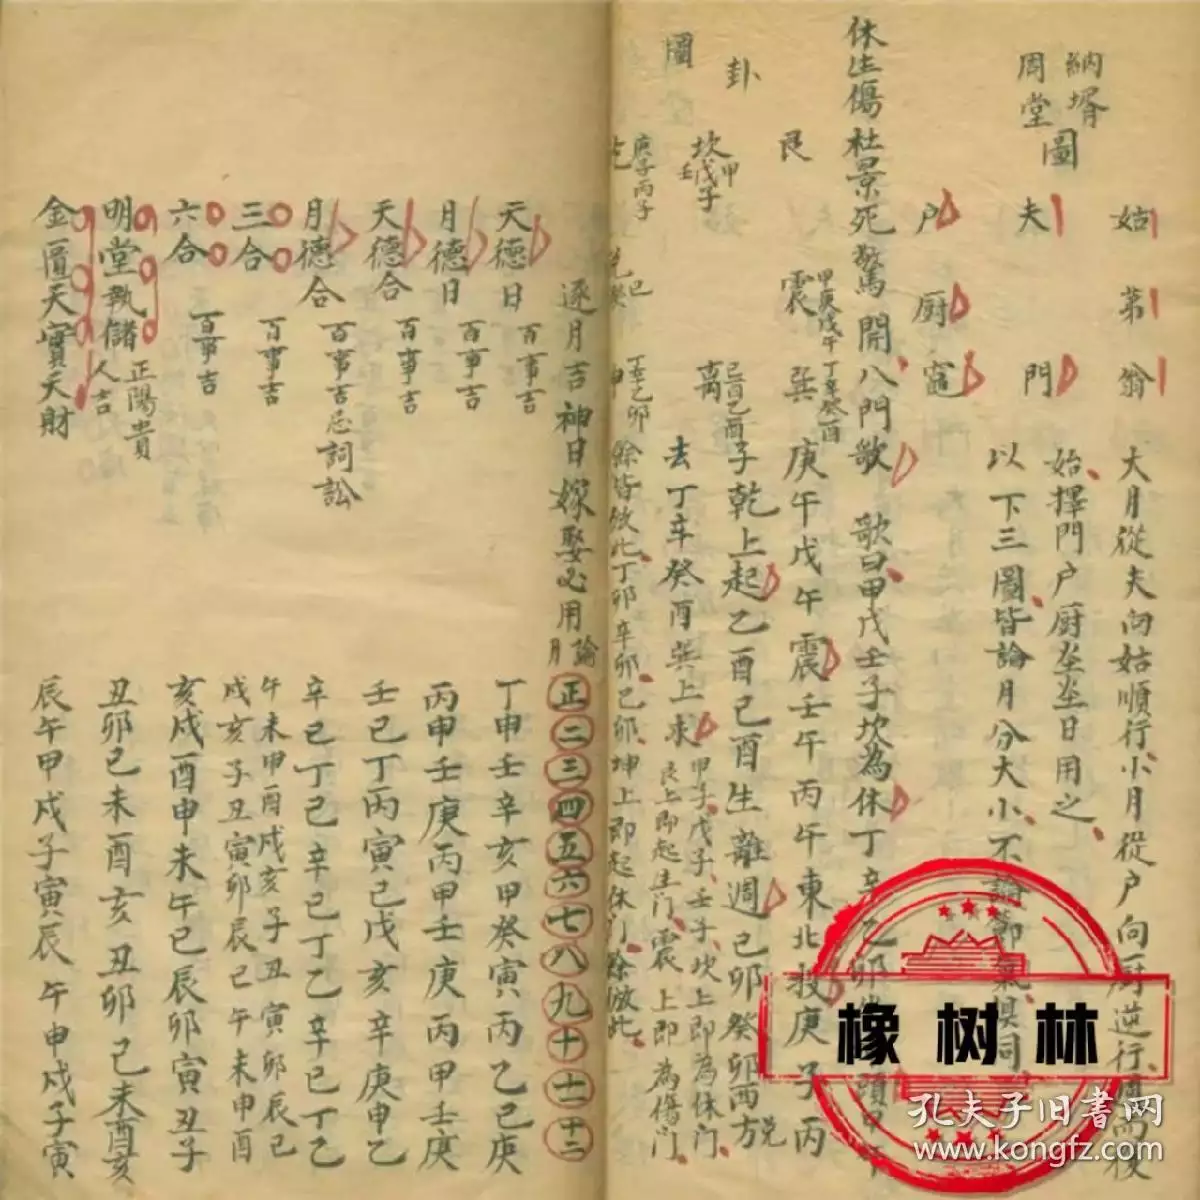 納壻
周堂
圖
姑 第 翁
夫 門
户 厨 竈
大月從夫向姑順行、小月從户向厨逆行、
始擇門户厨坴坴日用之、
以下三圖、皆論月分大小、不論節氣俱同、
休生傷杜景死驚開、八門歌 歌曰、甲戊壬子坎為休
艮 震 甲庚戊午 巽 丁辛癸酉 庚午戊午震壬午丙午東北投庚子丙
卦 坎 甲戊子壬 離 己酉乙酉 子乾上起乙酉己酉生離週己卯癸卯西方兑
圖 去丁辛癸酉巽上求 甲子、戊子、壬子、坎上即為休門、
艮上即起生門、震上即為傷門、
庚子丙子 丁辛乙卯 餘皆倣此、丁卯辛卯己卯、坤上即起休门、餘倣此、
逐月吉神日嫁娶必用論月 正二三四五六七八九十十一十二
天德日 百事吉 丁申壬辛亥甲癸寅丙乙己庚
月德日 百事吉 丙甲壬庚丙甲壬庚丙甲壬庚
天德合 百事吉 壬己丁丙寅己戊亥辛庚申乙
月德合 百事吉忌詞訟 辛己丁己辛己丁乙辛己丁乙
三合 百事吉 午未申酉戌亥子丑寅卯辰己
戌亥子丑寅卯辰己午未申酉
六合 百事吉 亥戌酉申未午己辰卯寅丑子
明堂執儲 人吉 正陽貴 丑卯己未酉亥丑卯己未酉亥
金匱天寶天財 辰午甲戌子寅辰午申戌子寅
橡树林
孔夫子旧书网
www.kongfz.com